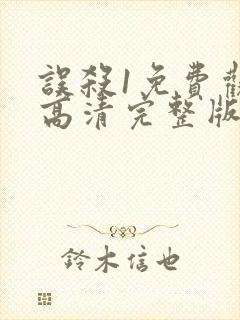 誤殺1免費觀
高清完整版
鈴木信也